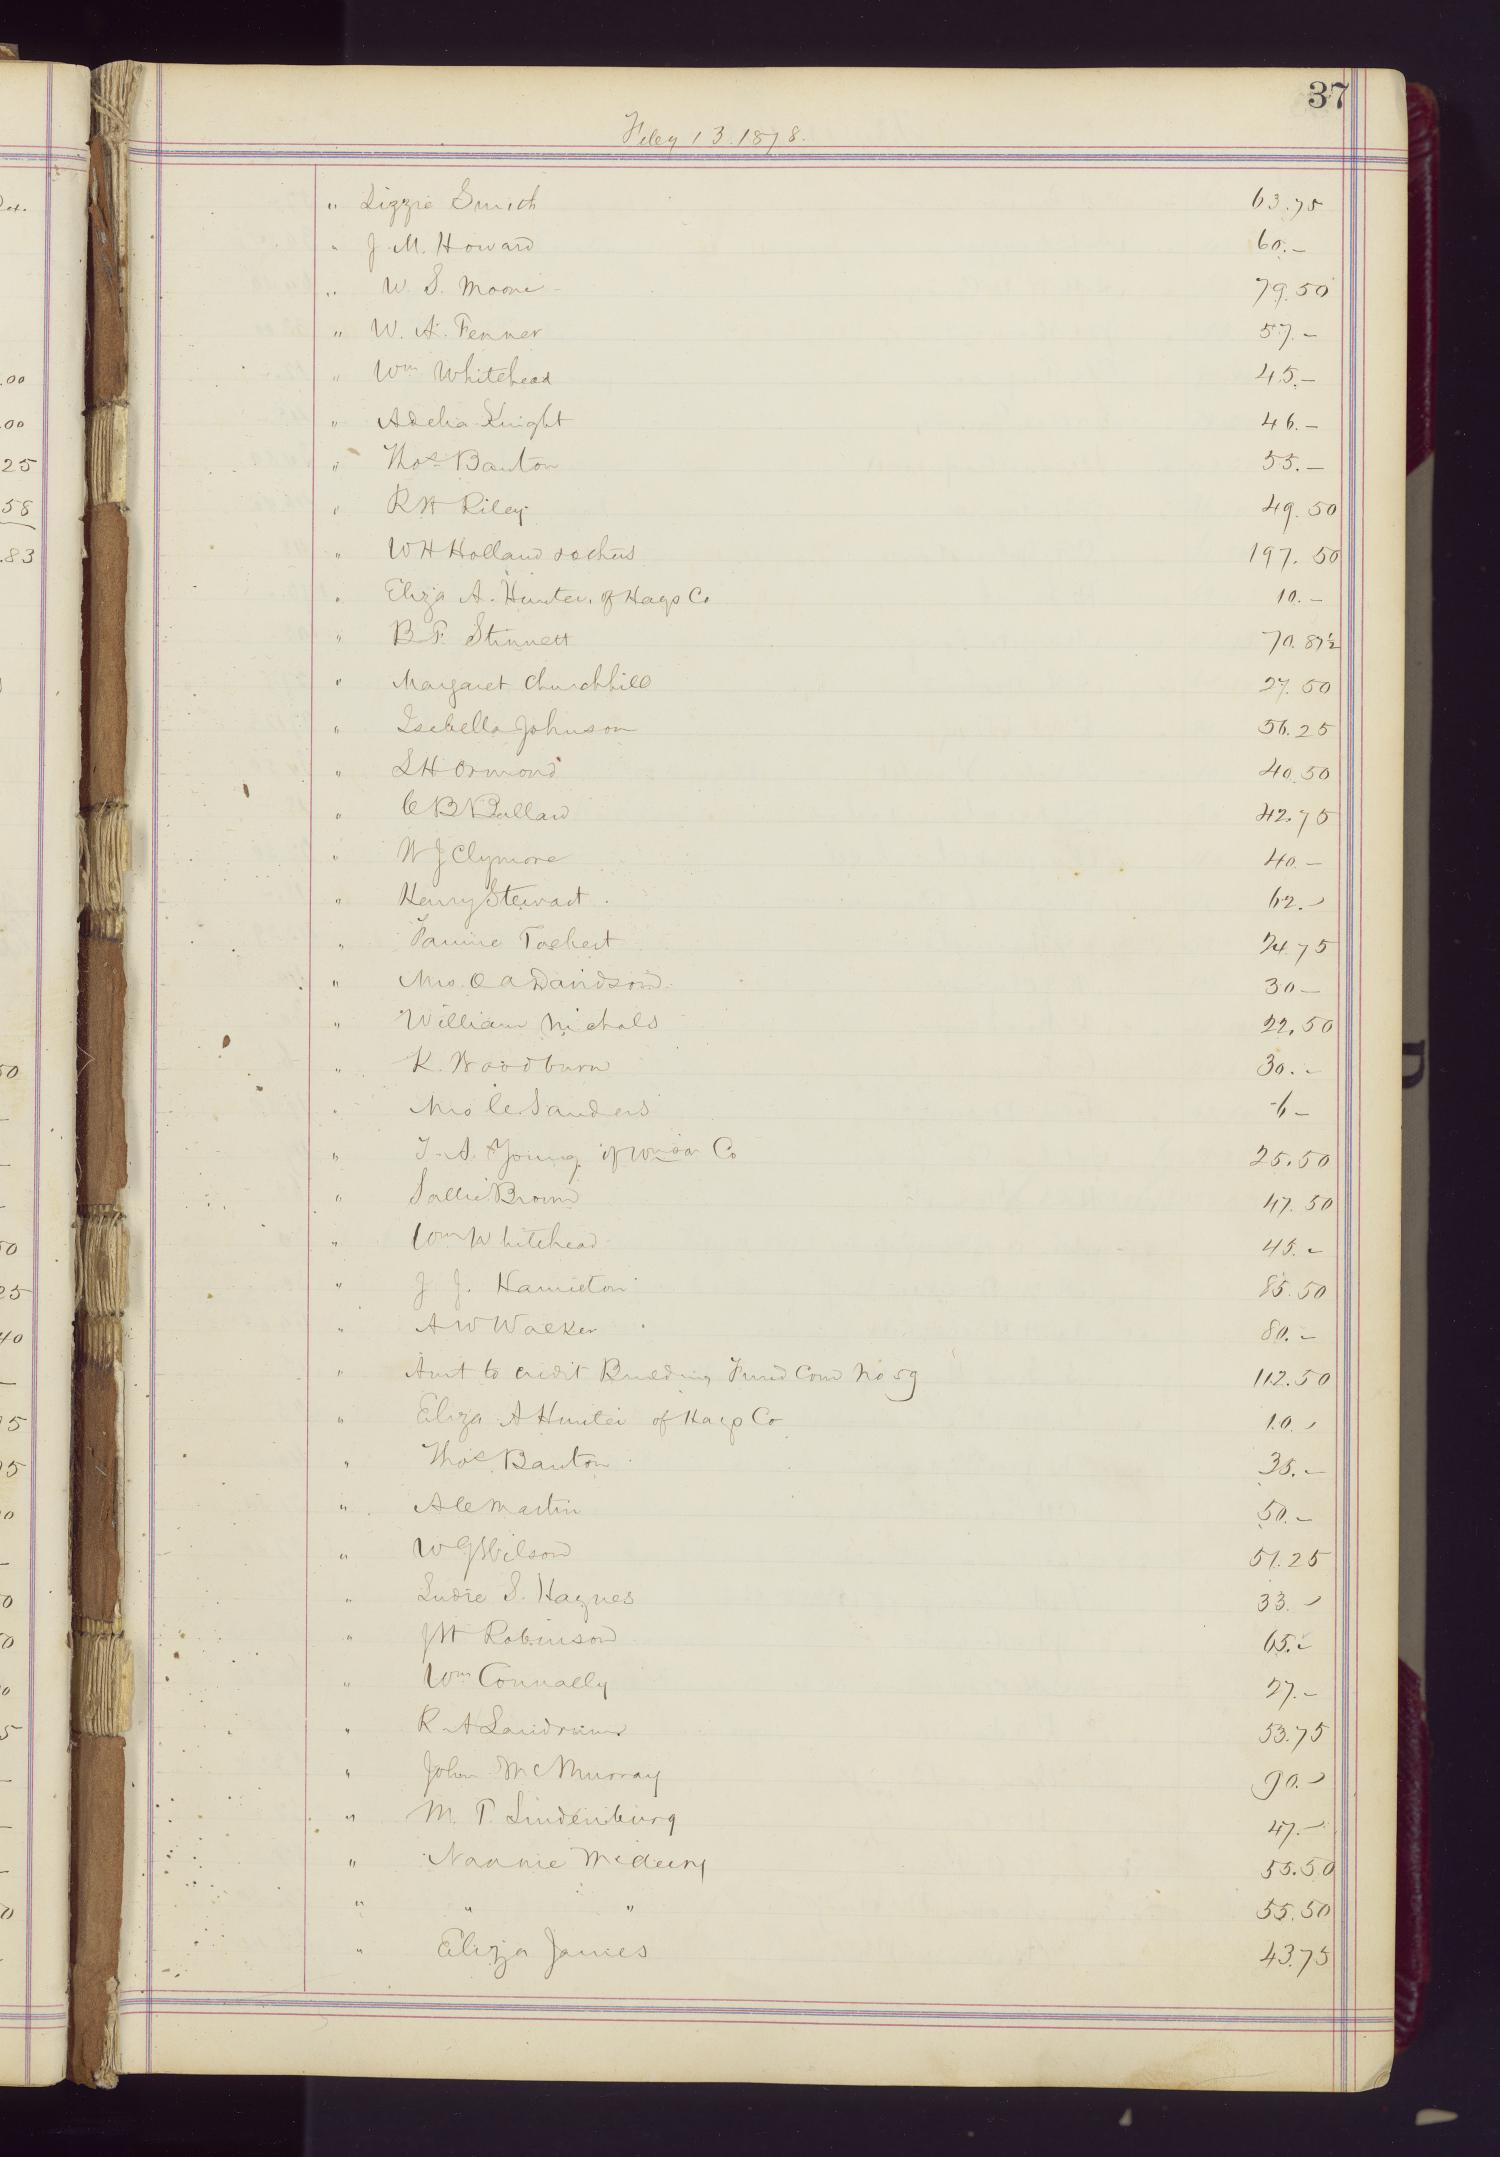 37
Feby 13. 1878.
" Lizzie Smith 63.75
" J. M. Howard 60.-
" W. S. Moore - 79.50
" W. A. Fenner 57.-
" Wm Whitehead 45.-
" Adelia Knight 46.-
" Thos Banton 55.-
" R H Riley 49.50
" W H Holland & others 197.50
" Eliza A. Hunter, of Hays Co 10.-
" B F. Stinnett 70.87½
" Margaret Churchhill 27.50
" Isebella Johnson 56.25
" S H Ormond 40.50
" C B Ballard 42.75
" W J Clymore 40.-
" Henry Stewart . 62.-
" Fannie 24.75
" Mrs. O A Davidson 30-
" William Nichols 22.50
" K. Woodburn 30.-
" Mrs C. Sanders 6-
" T. A. Young of Co 25.50
" Sallie Brown 47.50
" Wm Whitehead 45.-
" J J. Hamilton 85.50
" A W Walker 80.-
" Amt to credit Building Fund Com No 59 112.50
" Eliza A Hunter of Hays Co 10.-
" Thos Banton 35.-
" A C Martin 50.-
" W G Wilson 51.25
" Ludie S. Haynes 33.-
" J H Robinson 65.-
" Wm Connally 27.-
" R A Landrum 53.75
" John McMurray 90.-
" M. T. Lindenburg 47.-
" Nannie 55.50
" " " 55.50
" Eliza James 43.75